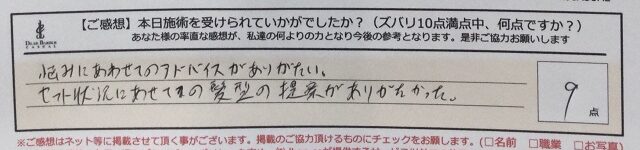 【ご感想】本日施術を受けられていかがでしたか？（ズバリ10点満点中、何点ですか？）
あなた様の率直な感想が、私達の何よりの力となり今後の参考となります。是非ご協力お願いします
悩みにあわせてのアドバイスがありがたい。
セット状況にあわせての髪型の提案がありがたかった。
9点
※ご感想はネット等に掲載させて頂く事がございます。掲載のご協力頂けるものにチェックをお願します。（□名前　□職業　□お写真）